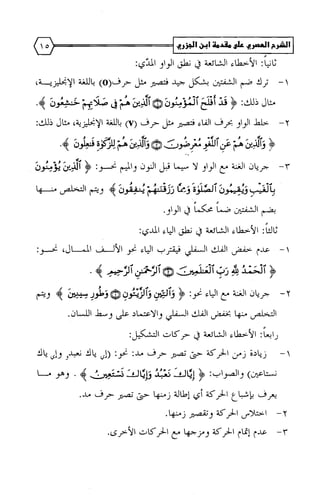 الشرح العصري على مقدمة ابن الجزري
١٥
ثانياً: الأخطاء الشائعة في نطق الواو المدّي:
١- ترك ضم الشفتين بشكل جيد فتصير مثل حرف(O) باللغة الإنجليزيــة،
مثال ذلك: ﴿ قَدْ أَفْلَحَ الْمُؤْمِنُونَ ۝ الَّذِينَ هُمْ فِي صَلَاتِهِمْ خَاشِعُونَ ﴾.
٢- خلط الواو بحرف الفاء فتصير مثل حرف (V) باللغة الإنجليزية، مثال ذلك:
﴿ وَالَّذِينَ هُمْ عَنِ اللَّغْوِ مُعْرِضُونَ ۝ وَالَّذِينَ هُمْ لِلزَّكَاةِ فَاعِلُونَ ﴾.
٣- جريان الغنة مع الواو لا سيما قبل النون والميم نحــو: ﴿ الَّذِينَ يُؤْمِنُونَ
بِالْغَيْبِ وَيُقِيمُونَ الصَّلَوٰةَ وَمِمَّا رَزَقْنَاهُمْ يُنفِقُونَ ﴾ ويتم التخلص منــها
بضم الشفتين ضماً محكماً في الواو.
ثالثاً: الأخطاء الشائعة في نطق الياء المدي:
١- عدم خفض الفك السفلي فيقترب الياء نحو الألــف الممــال، نحــو:
﴿ الْحَمْدُ لِلَّهِ رَبِّ الْعَالَمِينَ ۝ الرَّحْمَٰنِ الرَّحِيمِ ﴾ .
٢- جريان الغنة مع الياء نحو: ﴿ وَالتِّينِ وَالزَّيْتُونِ ۝ وَطُورِ سِينِينَ ﴾ ويتم
التخلص منها بخفض الفك السفلي والاعتماد على وسط اللسان.
رابعاً: الأخطاء الشائعة في حركات التشكيل:
١- زيادة زمن الحركة حتى تصير حرف مد: نحو: (إلى ياك نعبدو وإلى ياك
نستاعين) والصواب: ﴿ إِيَّاكَ نَعْبُدُ وَإِيَّاكَ نَسْتَعِينُ ﴾ . وهو مــا
يعرف بإشباع الحركة أي إطالة زمنها حتى تصير حرف مد.
٢- اختلاس الحركة وتقصير زمنها.
٣- عدم إتمام الحركة ومزجها مع الحركات الأخرى.